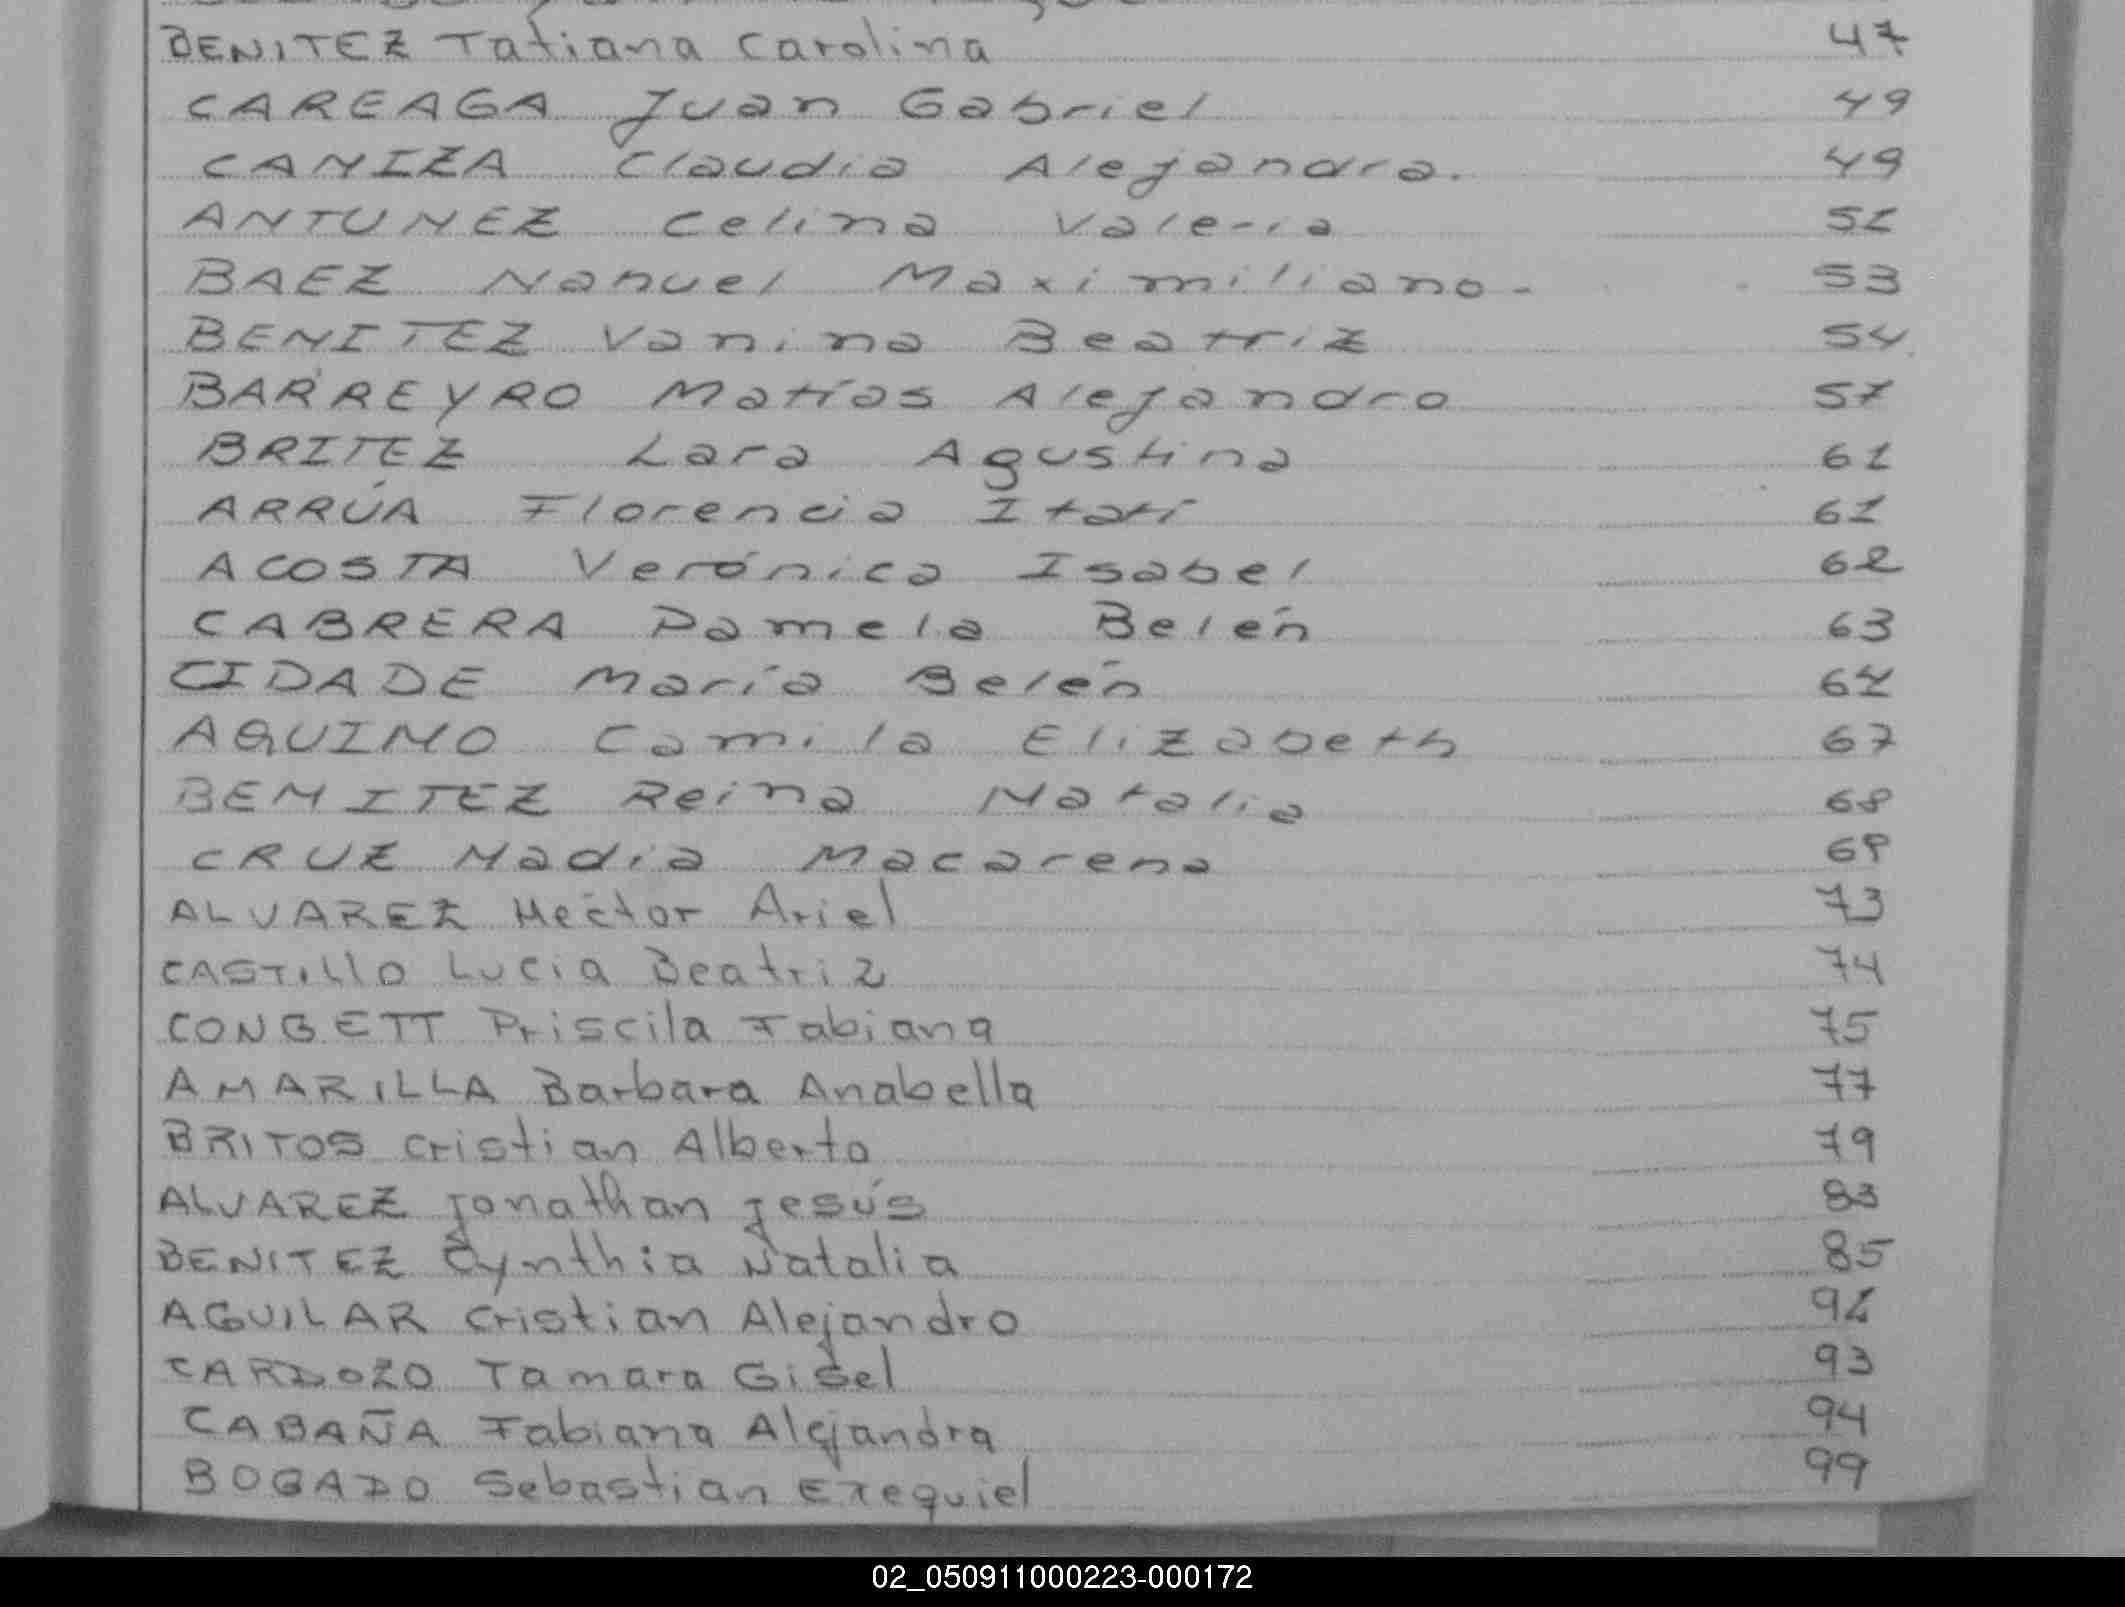 BENITEZ Tatiana Carolina 47
CAREAGA Juan Gabriel 49
CANIZA Claudia Alejandra. 49
ANTUNEZ Celina Valeria 51
BAEZ Nahuel Maximiliano - 53
BENITEZ Vanina Beatriz 54
BARREYRO Matías Alejandro 57
BRITEZ Lara Agustina 61
ARRÚA Florencia Itatí 61
ACOSTA Verónica Isabel 62
CABRERA Pamela Belén 63
CIDADE María Belén 64
AQUINO Camila Elizabeth 67
BENITEZ Reina Natalia 68
CRUZ Nadia Macarena 69
ALVAREZ Hector Ariel 73
CASTILLO Lucia Beatriz 74
CONGETT Priscila Fabiana 75
AMARILLA Barbara Anabella 77
BRITOS Cristian Alberto 79
ALVAREZ Jonathan Jesús 83
BENITEZ Cynthia Natalia 85
AGUILAR Cristian Alejandro 91
CARDOZO Tamara Gisel 93
CABAÑA Fabiana Alejandra 94
BOGADO Sebastian Exequiel 99
02_050911000223-000172